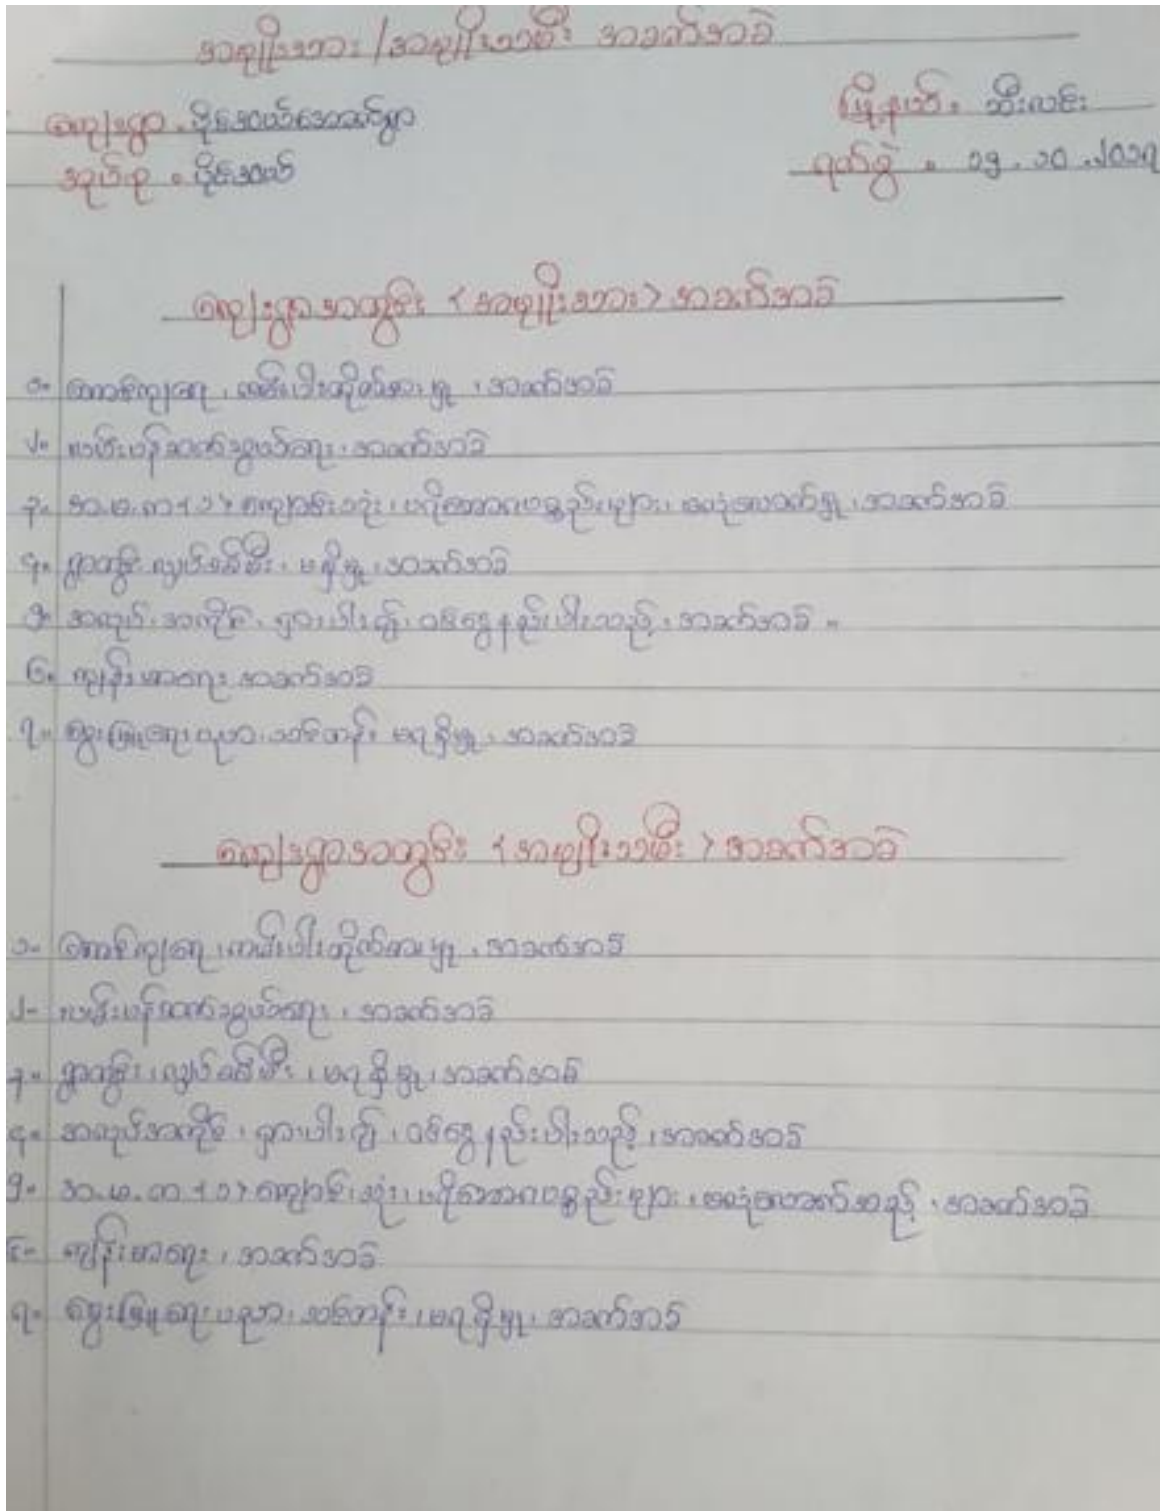 အမျိုးသား / အမျိုးသမီး အခက်အခဲ
ကျေးရွာ - ပိုင်းဒယ်အောက်ရွာ
မြို့နယ် - ဆီးလင်း
အုပ်စု - ပိုင်းဒယ်
ရက်စွဲ - ၁၄.၁၀.၂၀၁၇
ကျေးရွာအတွင်း <အမျိုးသား> အခက်အခဲ
၁။ ချောင်းကျရေ၊ ကမ်းပါးတိုက်စားမှု၊ အခက်အခဲ
၂။ လမ်းပန်းဆက်သွယ်ရေး၊ အခက်အခဲ
၃။ အ.မ.က <၁> ကျောင်းသုံး၊ ပရိဘောဂပစ္စည်းများ၊ မလုံလောက်မှု၊ အခက်အခဲ
၄။ ရွာတွင်း လျှပ်စစ်မီး၊ မရှိမှု၊ အခက်အခဲ
၅။ အလုပ်အကိုင်၊ ရှားပါး၍၊ ဝင်ငွေနည်းပါးသည့်၊ အခက်အခဲ။
၆။ ကျန်းမာရေး အခက်အခဲ
၇။ မွေးမြူရေးပညာ၊ သင်တန်း မရရှိမှု၊ အခက်အခဲ
ကျေးရွာအတွင်း <အမျိုးသမီး> အခက်အခဲ
၁။ ချောင်းကျရေ၊ ကမ်းပါးတိုက်စားမှု၊ အခက်အခဲ
၂။ လမ်းပန်းဆက်သွယ်ရေး၊ အခက်အခဲ
၃။ ရွာတွင်း၊ လျှပ်စစ်မီး၊ မရရှိမှု၊ အခက်အခဲ
၄။ အလုပ်အကိုင်၊ ရှားပါး၍၊ ဝင်ငွေနည်းပါးသည့်၊ အခက်အခဲ
၅။ အ.မ.က <၁> ကျောင်းသုံး၊ ပရိဘောဂပစ္စည်းများ၊ မလုံလောက်သည့်၊ အခက်အခဲ
၆။ ကျန်းမာရေး၊ အခက်အခဲ
၇။ မွေးမြူရေးပညာ၊ သင်တန်း၊ မရရှိမှု၊ အခက်အခဲ